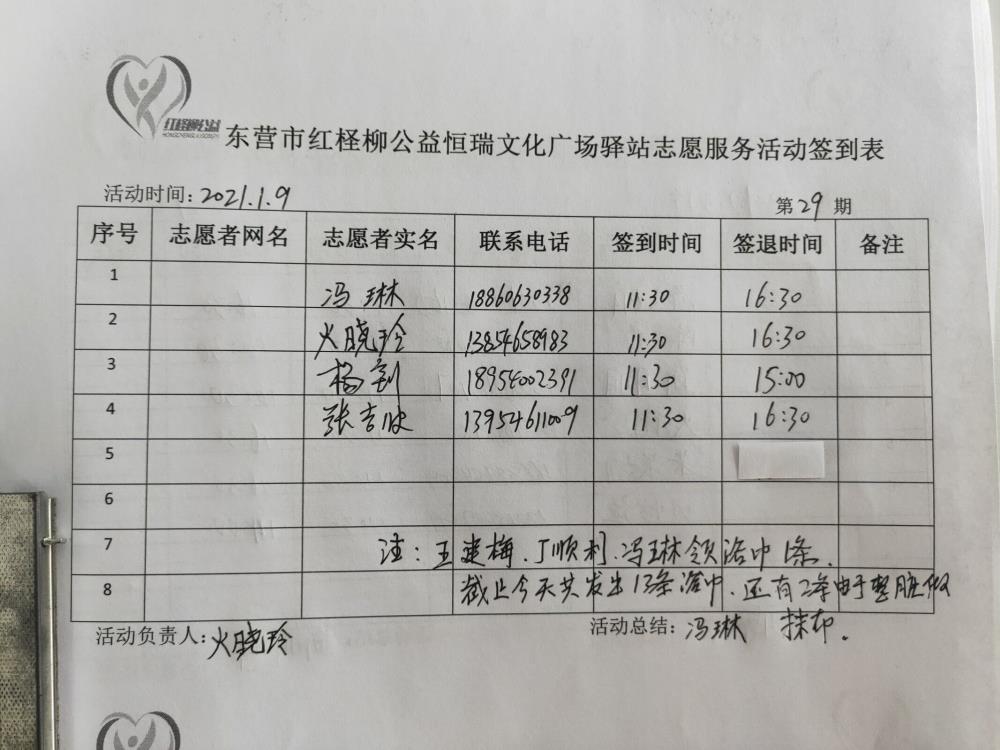 红柽柳公益
东营市红柽柳公益恒瑞文化广场驿站志愿服务活动签到表
活动时间：2021.1.9
第29期
序号 志愿者网名 志愿者实名 联系电话 签到时间 签退时间 备注
1 冯琳 18860630338 11:30 16:30
2 火晓玲 13854658983 11:30 16:30
3 杨剑 18954002391 11:30 15:00
4 张吉 13954611009 11:30 16:30
5
6
7 注：王建梅、丁顺利、冯琳领浴巾1条.
8 截止今天共发出13条浴巾、还有2条由于 脏做
活动负责人：火晓玲 活动总结：冯琳 抹布.